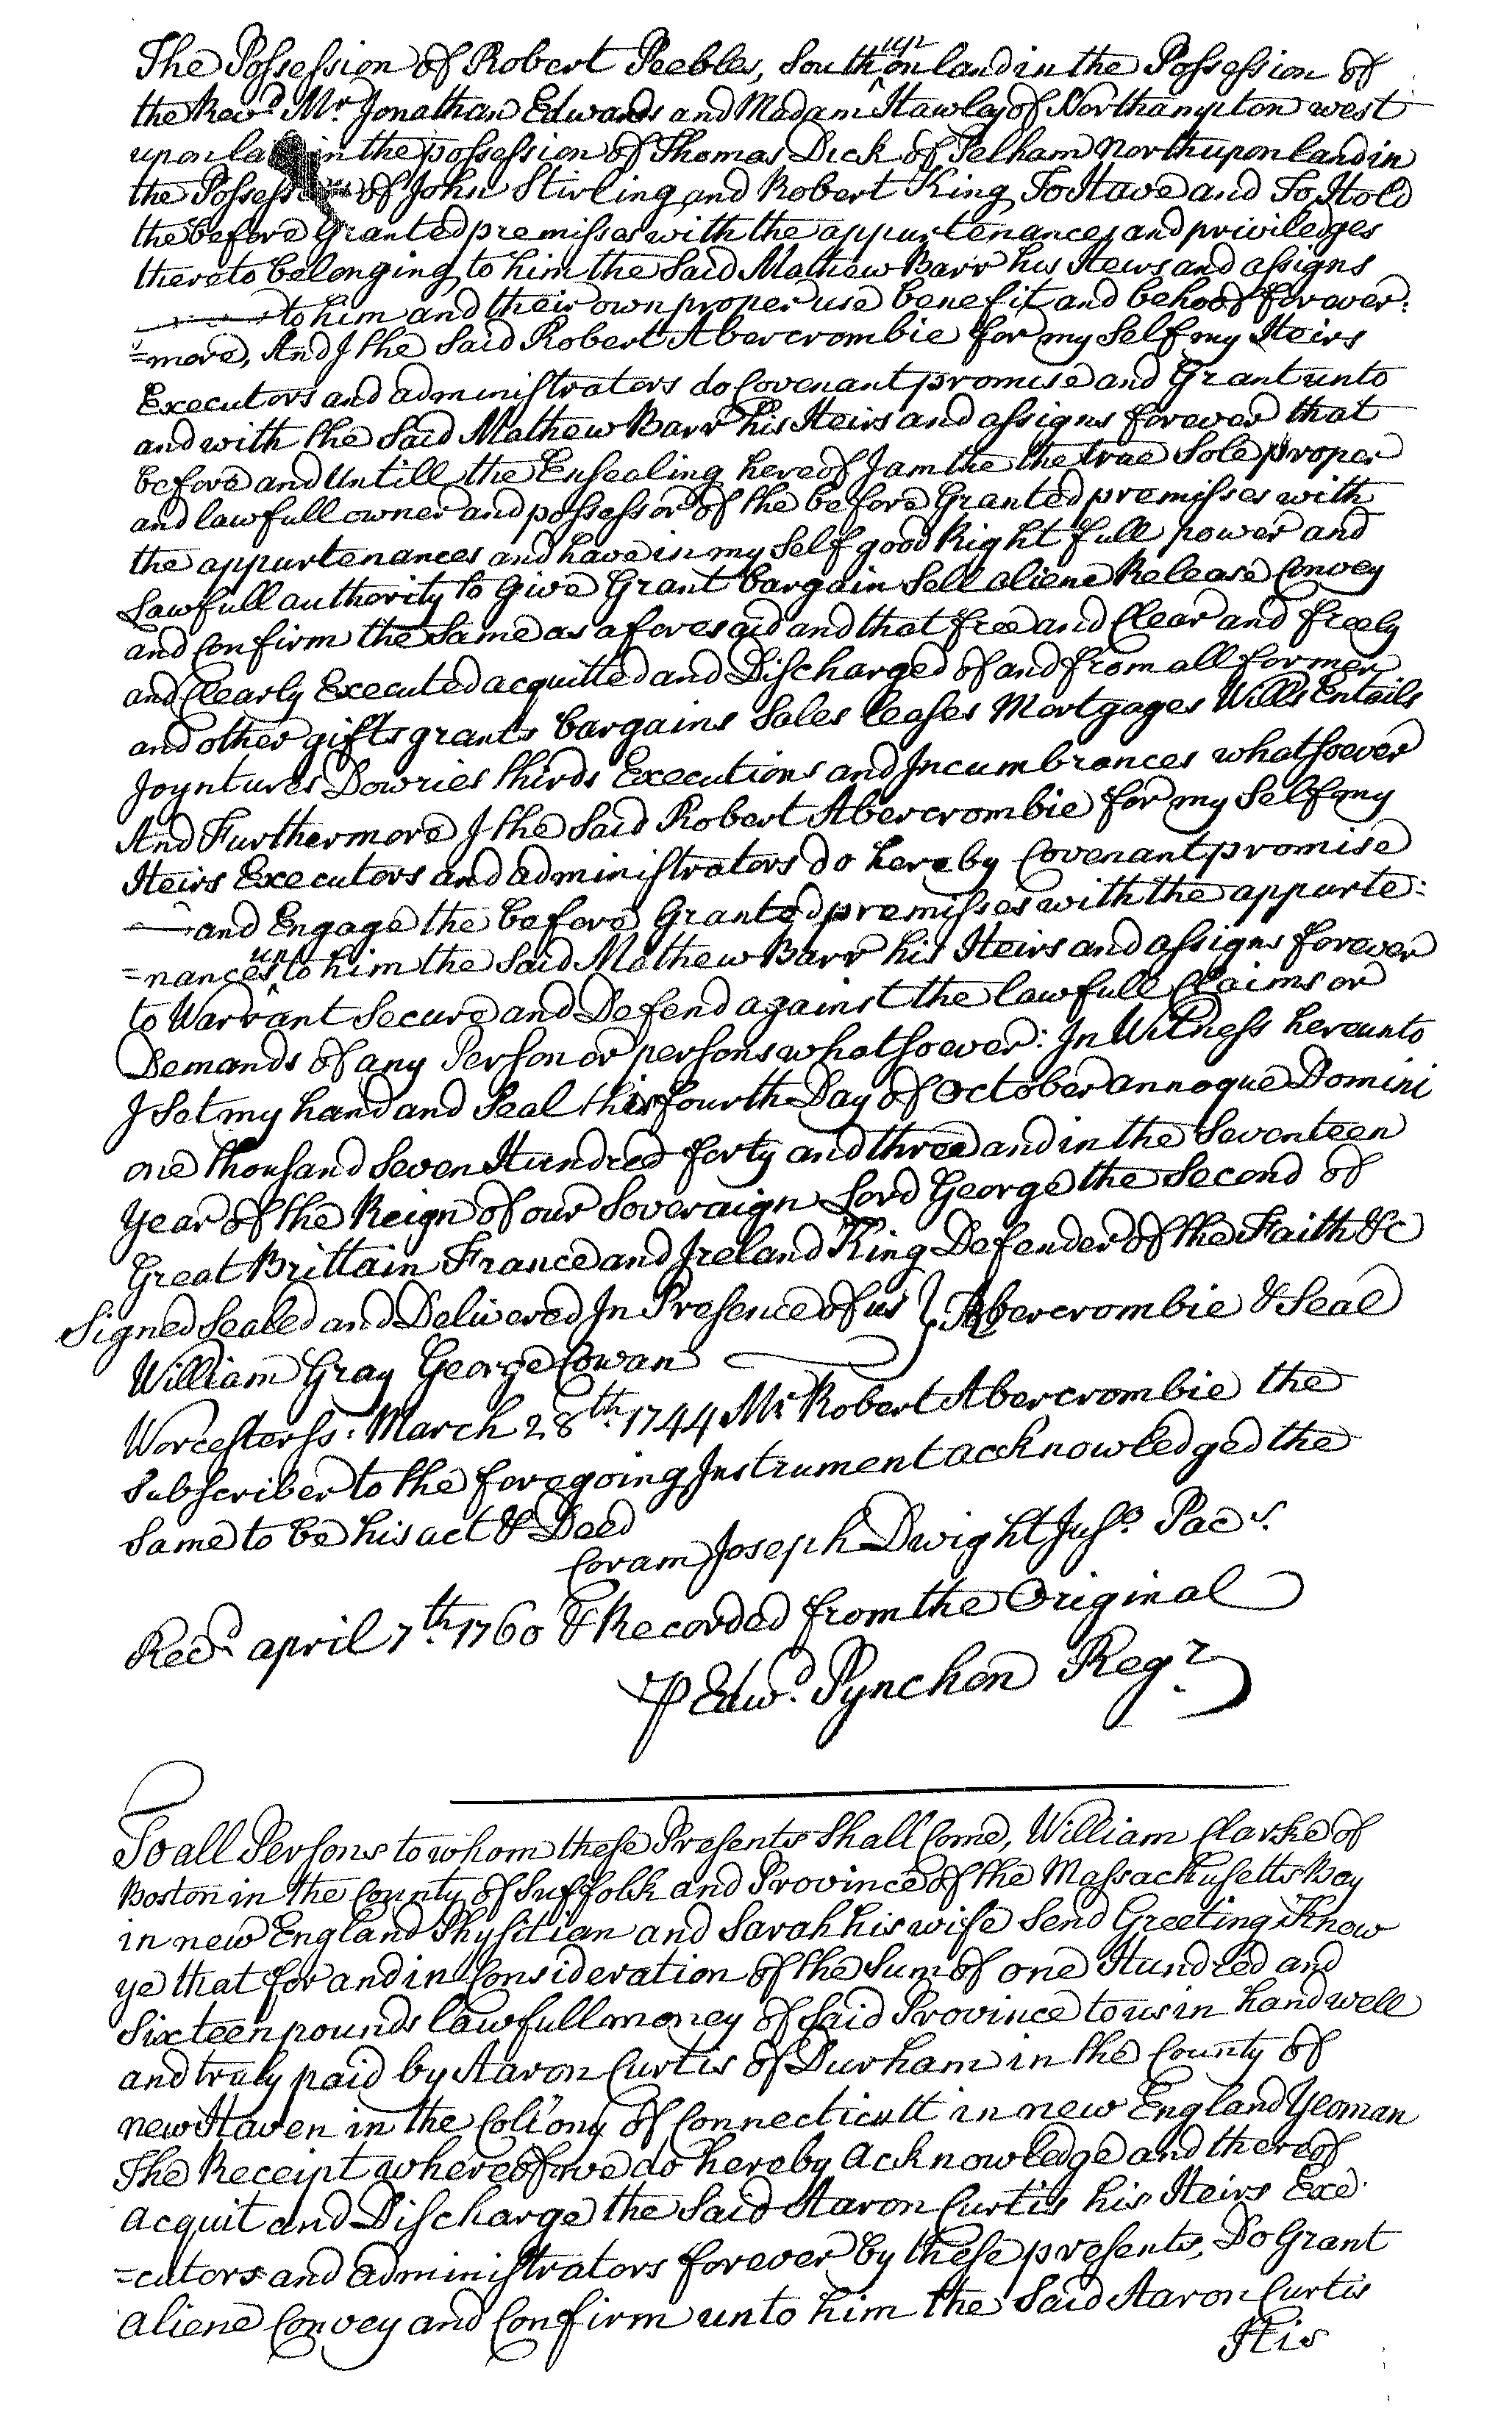 The Possession of Robert Peebles, South upon land in the Possession of
the Revd. Mr. Jonathan Edwards and Madam Hawley of Northampton west
upon land in the possession of Thomas Dick of Pelham north upon land in
the Possession of John Stirling and Robert King To Have and To Hold
the before Granted premisses with the appurtenances and priviledges
thereto belonging to him the Said Mathew Barr his Heirs and assigns
to him and their own proper use benefit and behoof forever:
=more, And I the Said Robert Abercrombie for my Self my Heirs
Executors and administrators do Covenant promise and Grant unto
and with the Said Mathew Barr his Heirs and assigns forever that
before and Untill the Ensealing hereof I am the the true Sole proper
and lawfull owner and possessor of the before Granted premisses with
the appurtenances and have in my Self good Right full power and
Lawfull authority to Give Grant bargain Sell aliene Release Convey
and Confirm the Same as aforesaid and that free and Clear and freely
and Clearly Executed acquitted and Discharged of and from all former
and other gifts grants bargains Sales leases Mortgages Wills Entails
Joyntures Dowries thirds Executions and Incumbrances whatsoever
And Furthermore I the Said Robert Abercrombie for my Self my
Heirs Executors and administrators do hereby Covenant promise
and Engage the before Granted premisses with the appurte:
=nances unto him the Said Mathew Barr his Heirs and assigns forever
to Warrant Secure and Defend against the lawfull Claims or
Demands of any Person or persons whatsoever: In Witness hereunto
I Set my hand and Seal this fourth Day of October annoque Domini
one thousand Seven Hundred forty and three and in the Seventeen
Year of the Reign of our Soveraign Lord George the Second of
Great Brittain France and Ireland King Defender of the Faith &c
Signed Sealed and Delivered In Presence of us } Abercrombie & Seal
William Gray George Cowan
Worcester ss: March 28th. 1744 Mr Robert Abercrombie the
Subscriber to the foregoing Instrument acknowledged the
Same to be his act & Deed
Coram Joseph Dwight Juso. Pacs.
Recd. april 7th. 1760 & Recorded from the Original
P Edwd. Pynchon Regr.
To all Persons to whom these Presents Shall Come, William Clarke of
Boston in the County of Suffolk and Province of the Massachusetts Bay
in new England Physitian and Sarah his wife Send Greeting Know
ye that for and in Consideration of the Sum of one Hundred and
Sixteen pounds lawfull money of Said Province to us in hand well
and truly paid by Aaron Curtis of Durham in the County of
new Haven in the Collony of Connecticutt in new England Yeoman
The Receipt whereof we do hereby acknowledge and thereof
acquit and Discharge the Said Aaron Curtis his Heirs Exe
=cutors and administrators forever by these presents, Do Grant
aliene Convey and Confirm unto him the Said Aaron Curtis
His